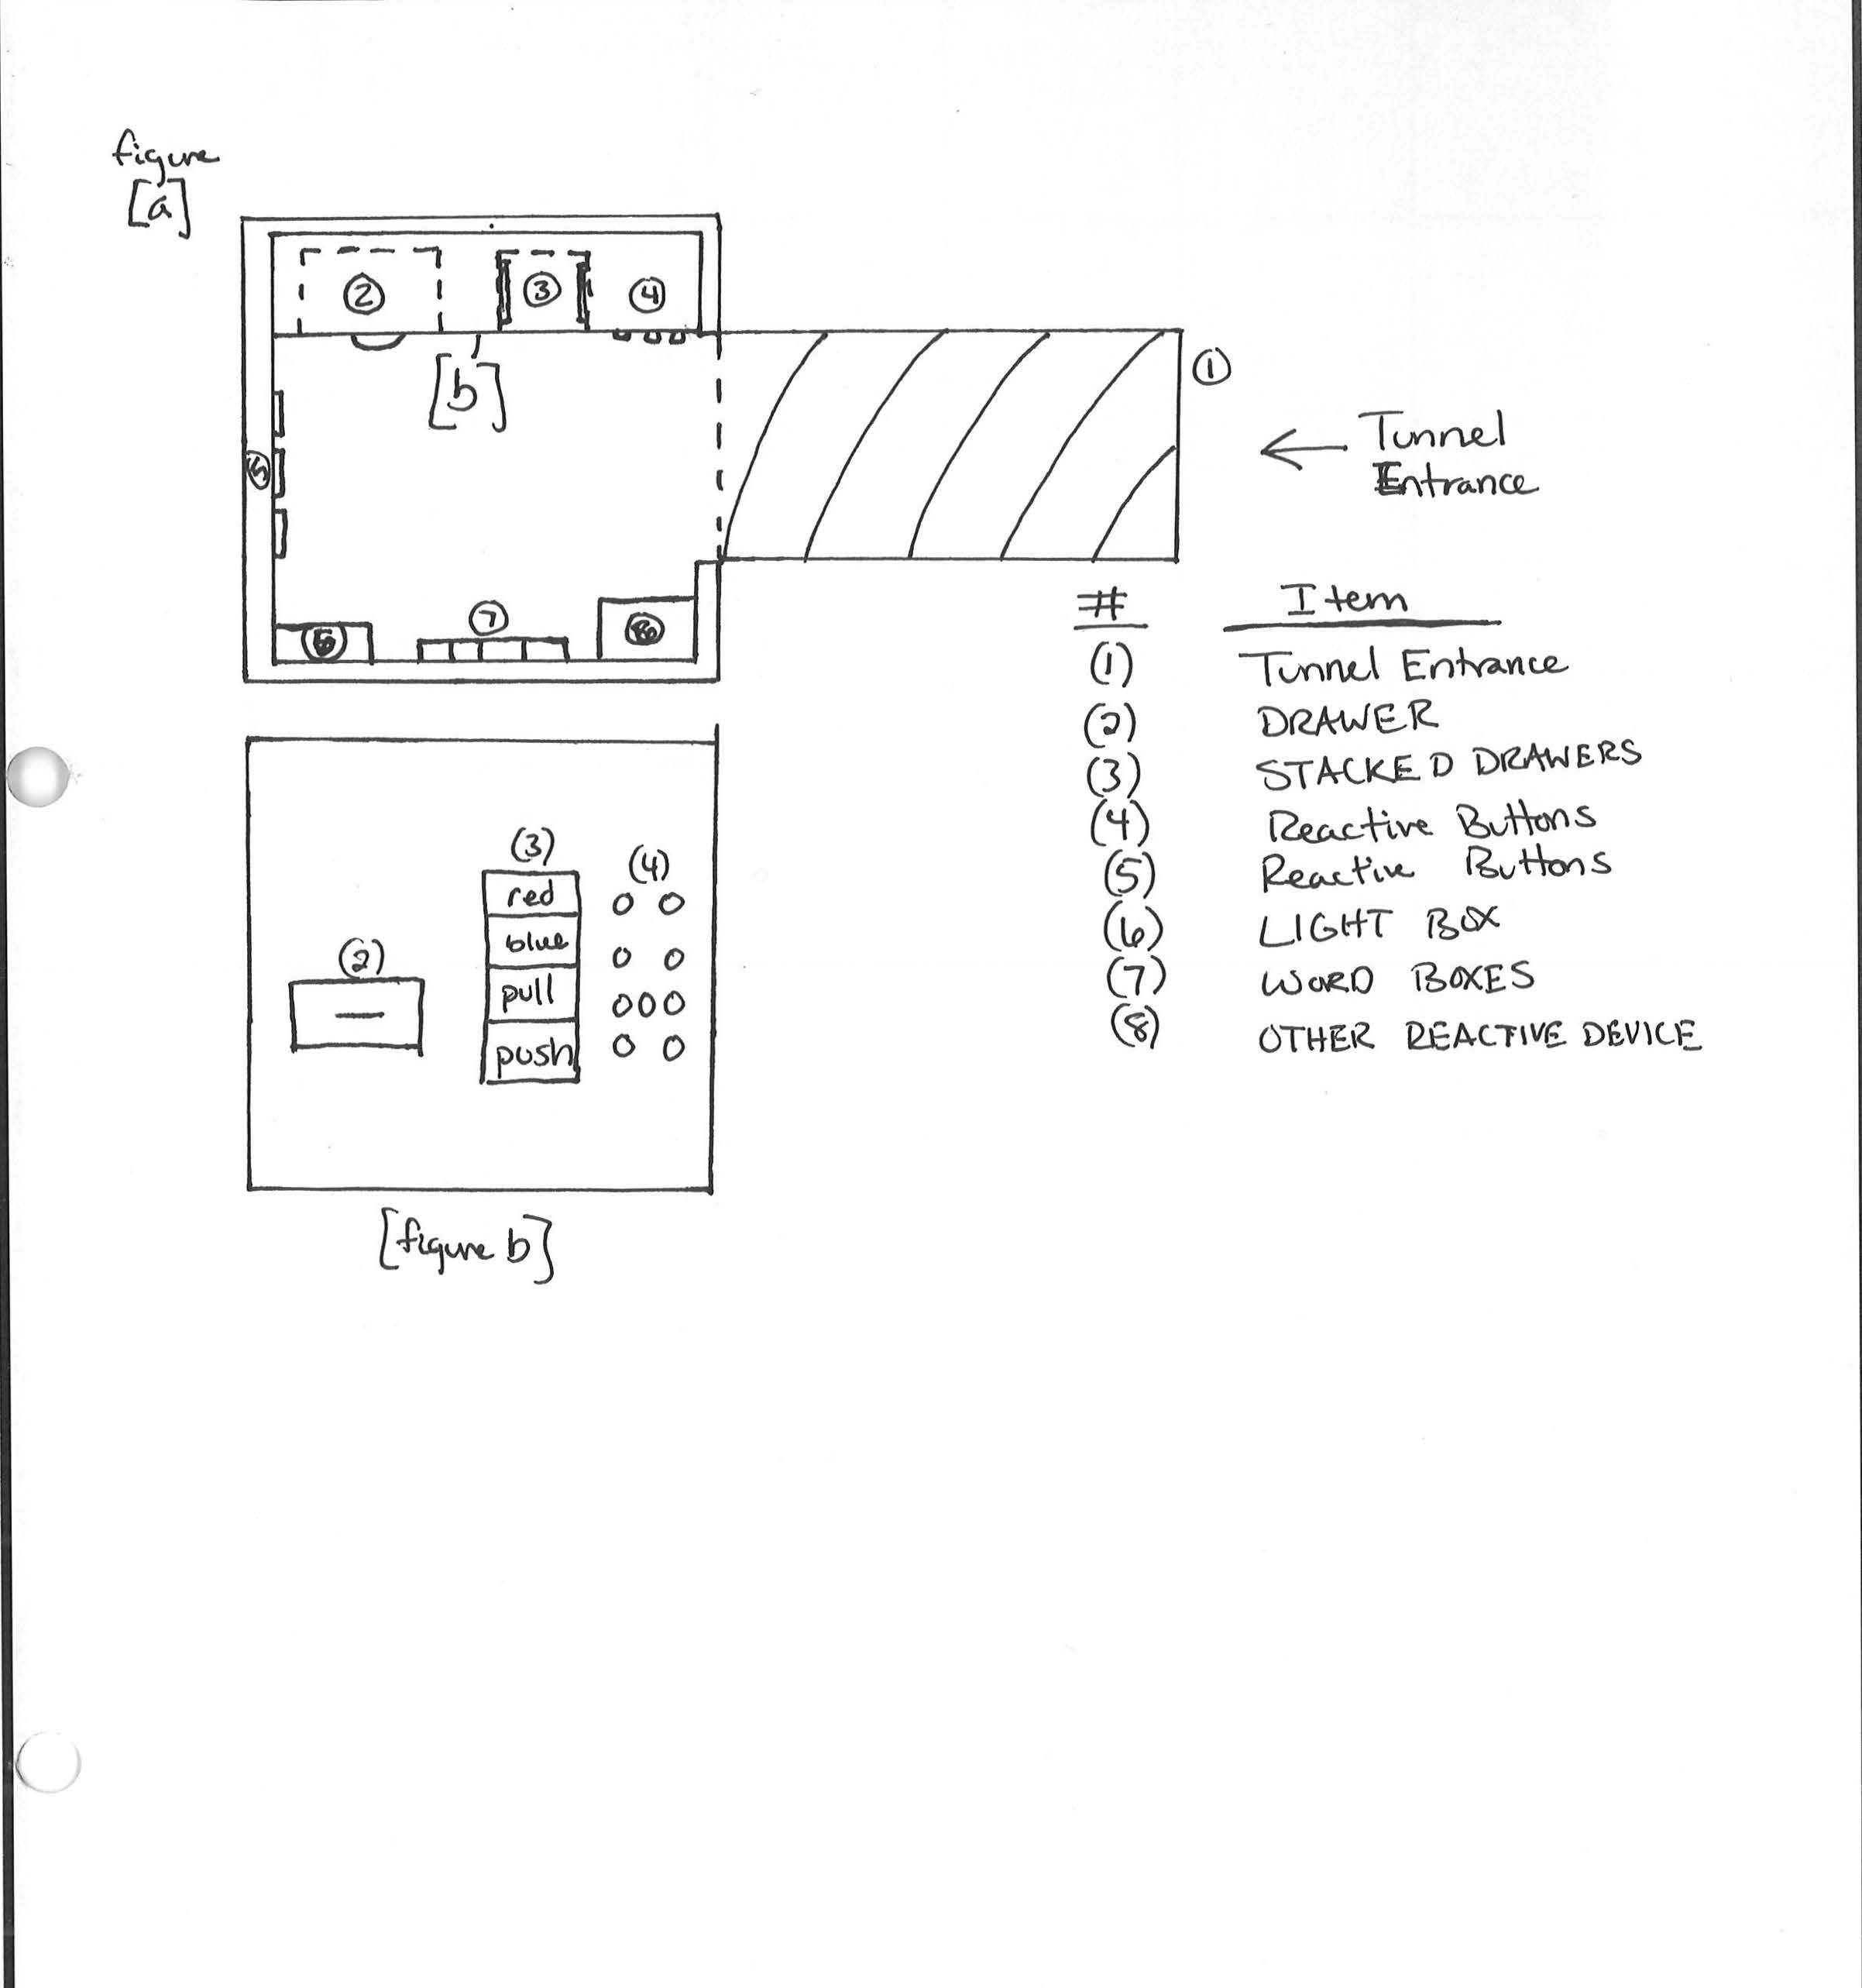 figure
[a]
② ③ ④
[b]
①
← Tunnel
Entrance
⑤
⑦
⑥ ⑧
# Item
(1) Tunnel Entrance
(2) DRAWER
(3) STACKED DRAWERS
(4) Reactive Buttons
(5) Reactive Buttons
(6) LIGHT BOX
(7) WORD BOXES
(8) OTHER REACTIVE DEVICE
(3)
(4)
red
blue
(2)
pull
push
[figure b]